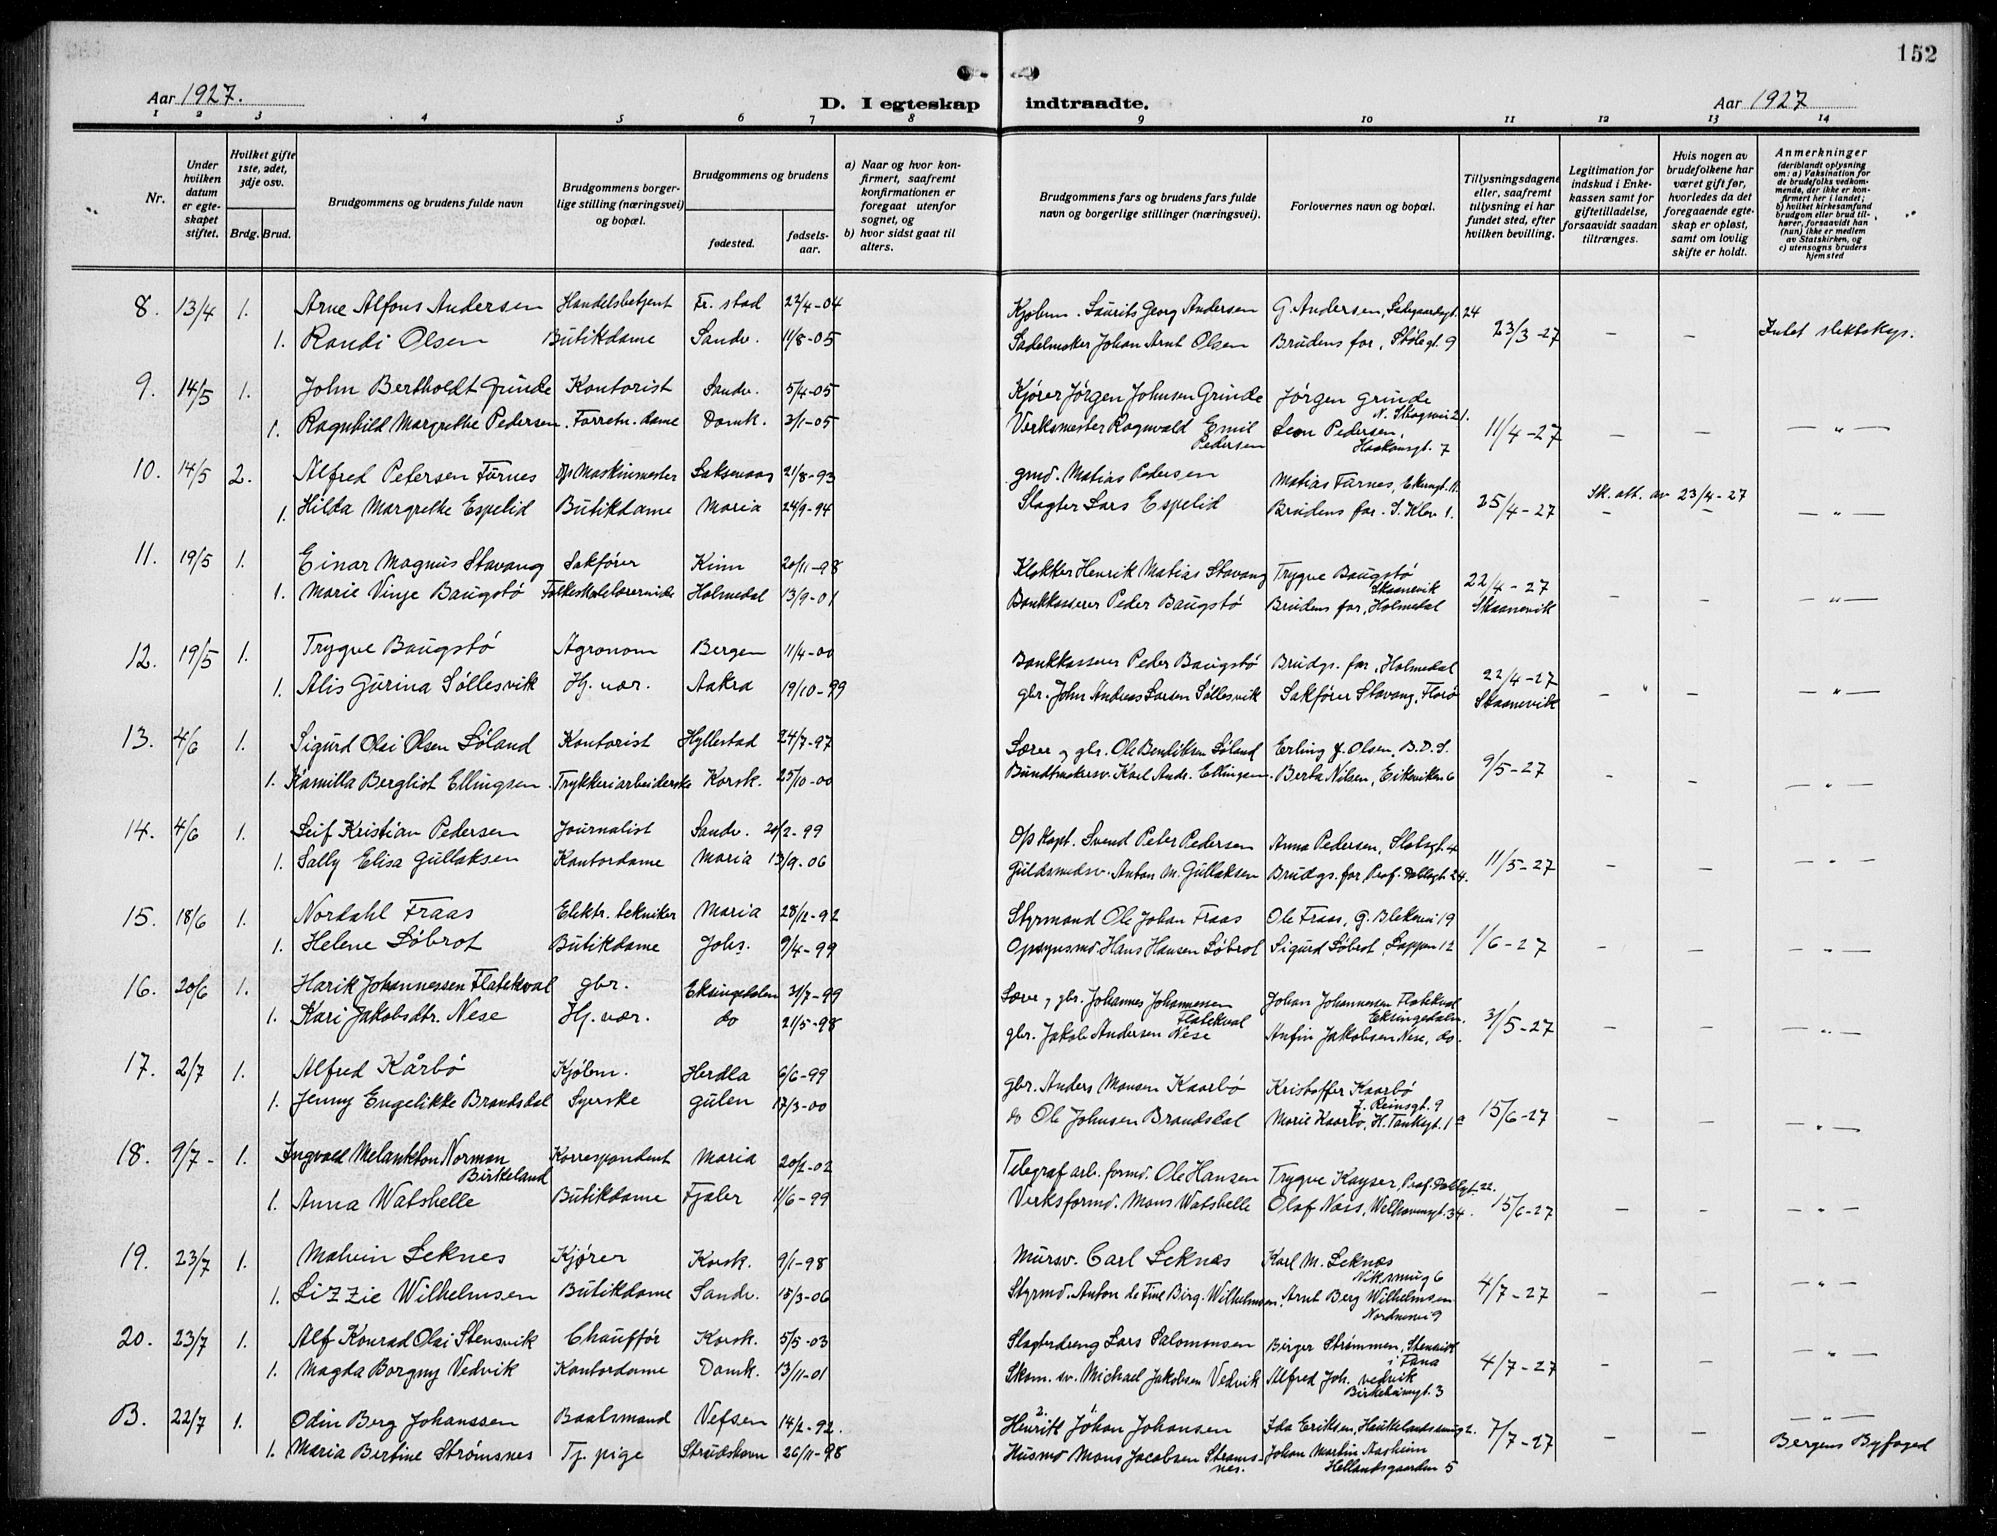 152
Aar 1927.
D. I egteskap indtraadte.
Aar 1927
1 2 3 4 5 6 7 8 9 10 11 12 13 14
Nr.
Under hvilken datum er egteskapet stiftet.
Hvilket gifte 1ste, 2det, 3dje osv.
Brdg. Brud.
Brudgommens og brudens fulde navn
Brudgommens borgerlige stilling (næringsvei) og bopæl.
Brudgommens og brudens
fødested. fødselsaar.
a) Naar og hvor konfirmert, saafremt konfirmationen er foregaat utenfor sognet, og
b) hvor sidst gaat til alters.
Brudgommens fars og brudens fars fulde navn og borgerlige stillinger (næringsvei).
Forlovernes navn og bopæl.
Tillysningsdagene eller, saafremt tillysning ei har fundet sted, efter hvilken bevilling.
Legitimation for indskud i Enkekassen samt for giftetilladelse, forsaavidt saadan tiltrænges.
Hvis nogen av brudefolkene har været gift før, hvorledes da det foregaaende egteskap er opløst, samt om lovlig skifte er holdt.
Anmerkninger (deriblandt oplysning om: a) Vaksination for de brudefolks vedkommende, der ikke er konfirmert her i landet; b) hvilket kirkesamfund brudgom eller brud tilhører, forsaavidt han (hun) ikke er medlem av Statskirken, og c) utensogns bruders hjemsted
8. 13/4 1. Arne Alfons Andersen Handelsbetjent Fr. stad 22/4-04 Kjølem. Laurits Georg Andersen G. Andersen, Ladegaardsgt. 24
1. Randi Olsen Butikdame Sandv. 11/8-05 Sadelmaker Johan Arnt Olsen Brudens far, Stølegt. 9 23/3-27 — — Intet slektskap.
9. 14/5 1. John Bertholdt Grinde Kontorist Sandv. 5/4-05 Kjører Jørgen Johnsen Grinde Jørgen Grinde N. Skogvei 21.
1. Ragnhild Margrethe Pedersen Forretn. dame Domk. 3/1-05 Verksmester Ragnvald Emil Pedersen Leon Pedersen, Haakonsgt. 7 11/4-27 — — — " —
10. 14/5 2. Alfred Petersen Furnes D/s Maskinmester 21/8-93 gmd. Matias Pedersen Matias Furnes, 11.
1. Hilda Margrethe Espelid Butikdame Maria 24/9-94 Slagter Lars Espelid Brudens far. S. Klev 1. 25/4-27 Sk. att. av 23/4-27 — — — " —
11. 19/5 1. Einar Magnus Stavang Sakfører Kinn 20/11-98 Klokker Henrik Matias Stavang Trygve Baugstø Skaanevik 22/4-27
1. Marie Vinje Baugstø Folkeskolelærerinde Holmedal 13/9-01 Bankkasserer Peder Baugstø Brudens far, Holmedal Skaanevik — — — " —
12. 19/5 1. Trygve Baugstø Agronom Bergen 11/4-00 Bankkasserer Peder Baugstø Brudgs. far, Holmedal 22/4-27
1. Alis Gurina Søllesvik Hj. vær. Aakra 19/10-99 gbr. John Andreas Larsen Søllesvik Sakfører Stavang, Florø Skaanevik — — — " —
13. 4/6 1. Sigurd Olai Olsen Løland Kontorist Hyllestad 24/7-97 Lærer og gbr. Ole Bendiksen Løland Erling J. Olsen, B.D.S.
1. Kamilla Bergliot Ellingsen Trykkeriarbeiderske Korsk. 25/10-00 Buntmakersv. Karl Andr. Ellingsen. Berta Nilsen, Eikeviken 6 9/5-27 — — — " —
14. 4/6 1. Leif Kristian Pedersen Journalist Sandv. 20/2-99 D/s Kapt. Svend Peter Pedersen Anna Pedersen, Slotsgt. 4
1. Sally Elisa Gullaksen Kontordame Maria 13/9-06 Guldsmedsv. Anton M. Gullaksen Brudgs. far, Prof. Dahlsgt. 24. 11/5-27 — — — " —
15. 18/6 1. Nordahl Fraas Elektr. tekniker Maria 28/12-92 Styrmand Ole Johan Fraas Ole Fraas, G. Blekevei 19
1. Helene Løbrot Butikdame Johs. 9/4-99 Opsynsmd. Hans Hansen Løbrot Sigurd Løbrot, Lappen 12 1/6-27 — — — " —
16. 20/6 1. Harik Johannessen Flatekval gbr. Eksingedalen 31/7-99 Lærer og gbr. Johannes Johannessen Flatekval Johan Johannessen Flatekval Eksingedalen.
1. Kari Jakobsdtr. Nese Hj. vær. do 21/5-98 gbr. Jakob Andersen Nese Anfin Jakobsen Nese, do. 31/5-27 — — — " —
17. 2/7 1. Alfred Kårbø Kjølem. Herdla 6/6-99 gbr. Anders Monsen Kaarbø Kristoffer Kaarbø J. Reinsgt. 9
1. Jenny Engelikke Brandsdal Syerske Gulen 17/3-00 do Ole Johnsen Brandsdal Marie Kaarbø, H. Tanksgt. 1 a 15/6-27 — — — " —
18. 9/7 - 1. Ingvald Melankton Norman Birkeland Korrespondent Maria 20/2-02 Telegraf arb. formd. Ole Hansen Trygve Kayser, Prof. Dahlsgt. 22.
1. Anna Watshelle Butikdame Fjaler 11/6-99 Verksformd. Mons Watshelle Olaf Næss, Welhavensgt. 34. 15/6-27 — — — " —
19. 23/7 1. Malvin Leknes Kjører Korsk. 9/1-98 Mursv. Carl Leknæs Karl M. Leknæs Nikesmug 6
1. Lizzie Wilhelmsen Butikdame Sandv. 15/3-06 Styrmd. Anton de Fine Birg. Wilhelmsen. Arnt Berg Wilhelmsen Nordnesvei 9 4/7-27 — — — " —
20. 23/7 1. Alf Konrad Olai Stensvik Chauffør Korsk. 5/5-03 Slagterdreng Lars Salomonsen Birger Strømmen, Stensvik i Fana
1. Magda Borgny Vedvik Kontordame Domk. 13/11-01 Skom. sv. Michael Jakobsen Vedvik Alfred Joh. Vedvik Birkebeinergt. 3 4/7-27 — — — " —
B. 22/7 1. Odin Berg Johanssen Baatsmand Vefsen 14/2-92. Henrik Johan Johansen Ida Eriksen, Haukelandssmug 2. — " —
1. Maria Bertine Strømsnes Tj. pige Strudshavn 26/11-98 Husmd Mons Jacobsen Strømsnes. Johan Martin Aasheim Hellandsgaarden 5 7/7-27 — — Bergens Byfoged